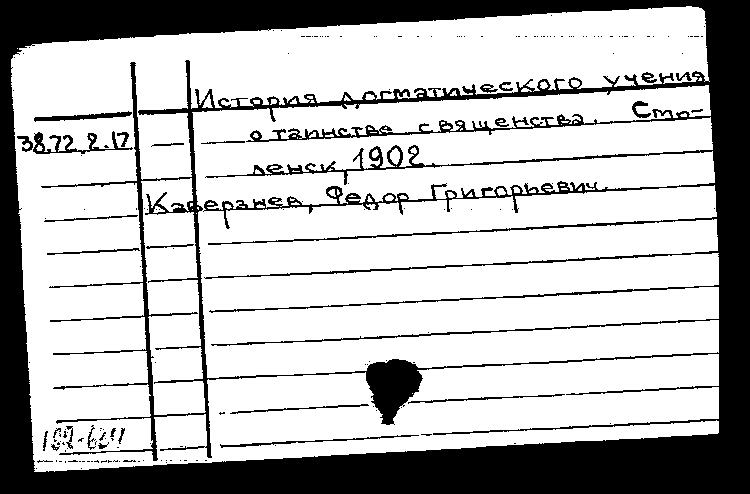 История догматического учения
38.72.2.17
о таинстве священства. Смо-
ленск, 1902.
Каверзнев, Федор Григорьевич.